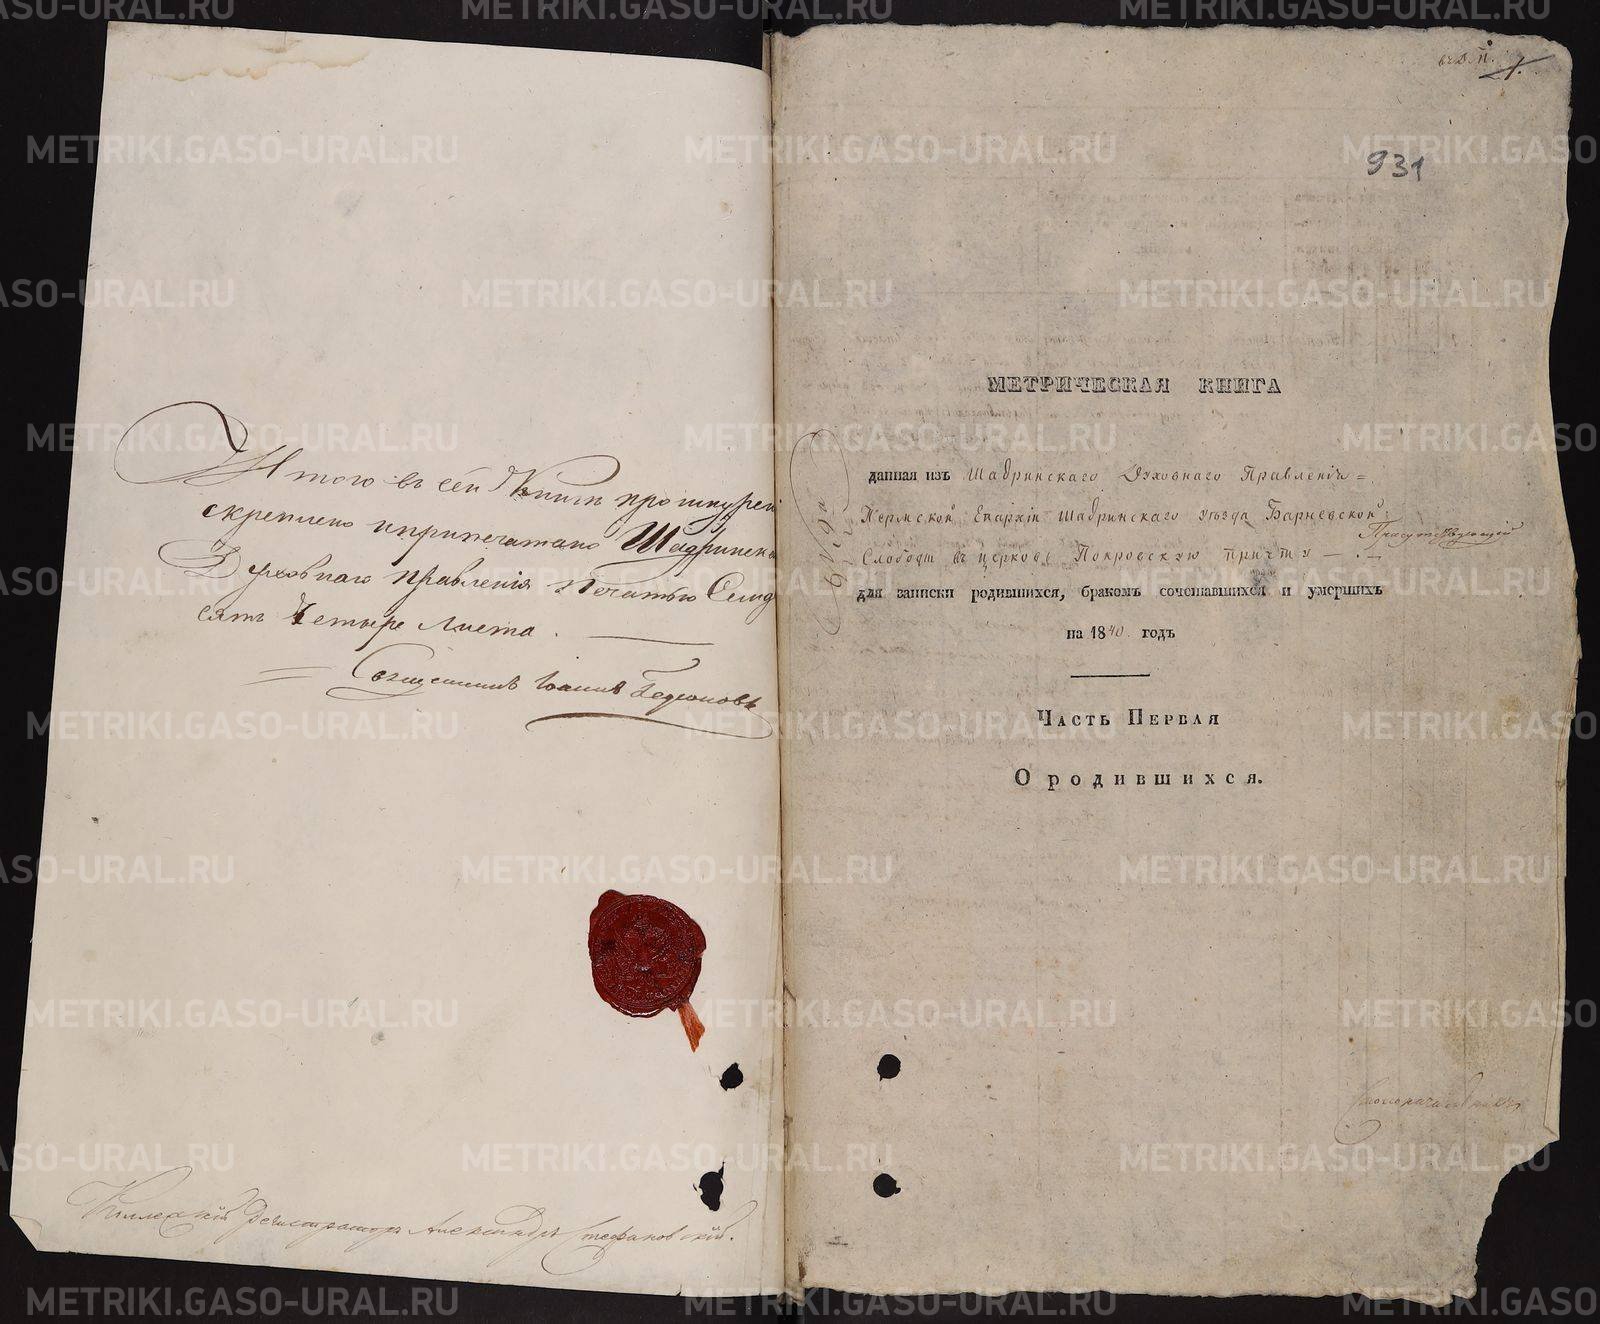 Итого въ сей Книгѣ прошнурен
скреплено ипропечатано Шадринска
Духовнаго Правленія Печатью Семд
сятъ Четыре Листа.
Священникъ Іоаннъ
Коллежскій Регистраторъ Александръ Стефановскій.
1.
931
МЕТРИЧЕСКАЯ КНИГА
данная изъ Шадринскаго Духовнаго Правленія =
Пермской Епархіи Шадринскаго уѣзда Барневской
Присутствующій
Слободы въ церковь Покровскую причту
для записки родившихся, бракомъ сочетавшихся и умершихъ
на 1840. годъ
ЧАСТЬ ПЕРВАЯ
О родившихся.
METRIKI.GASO-URAL.RU